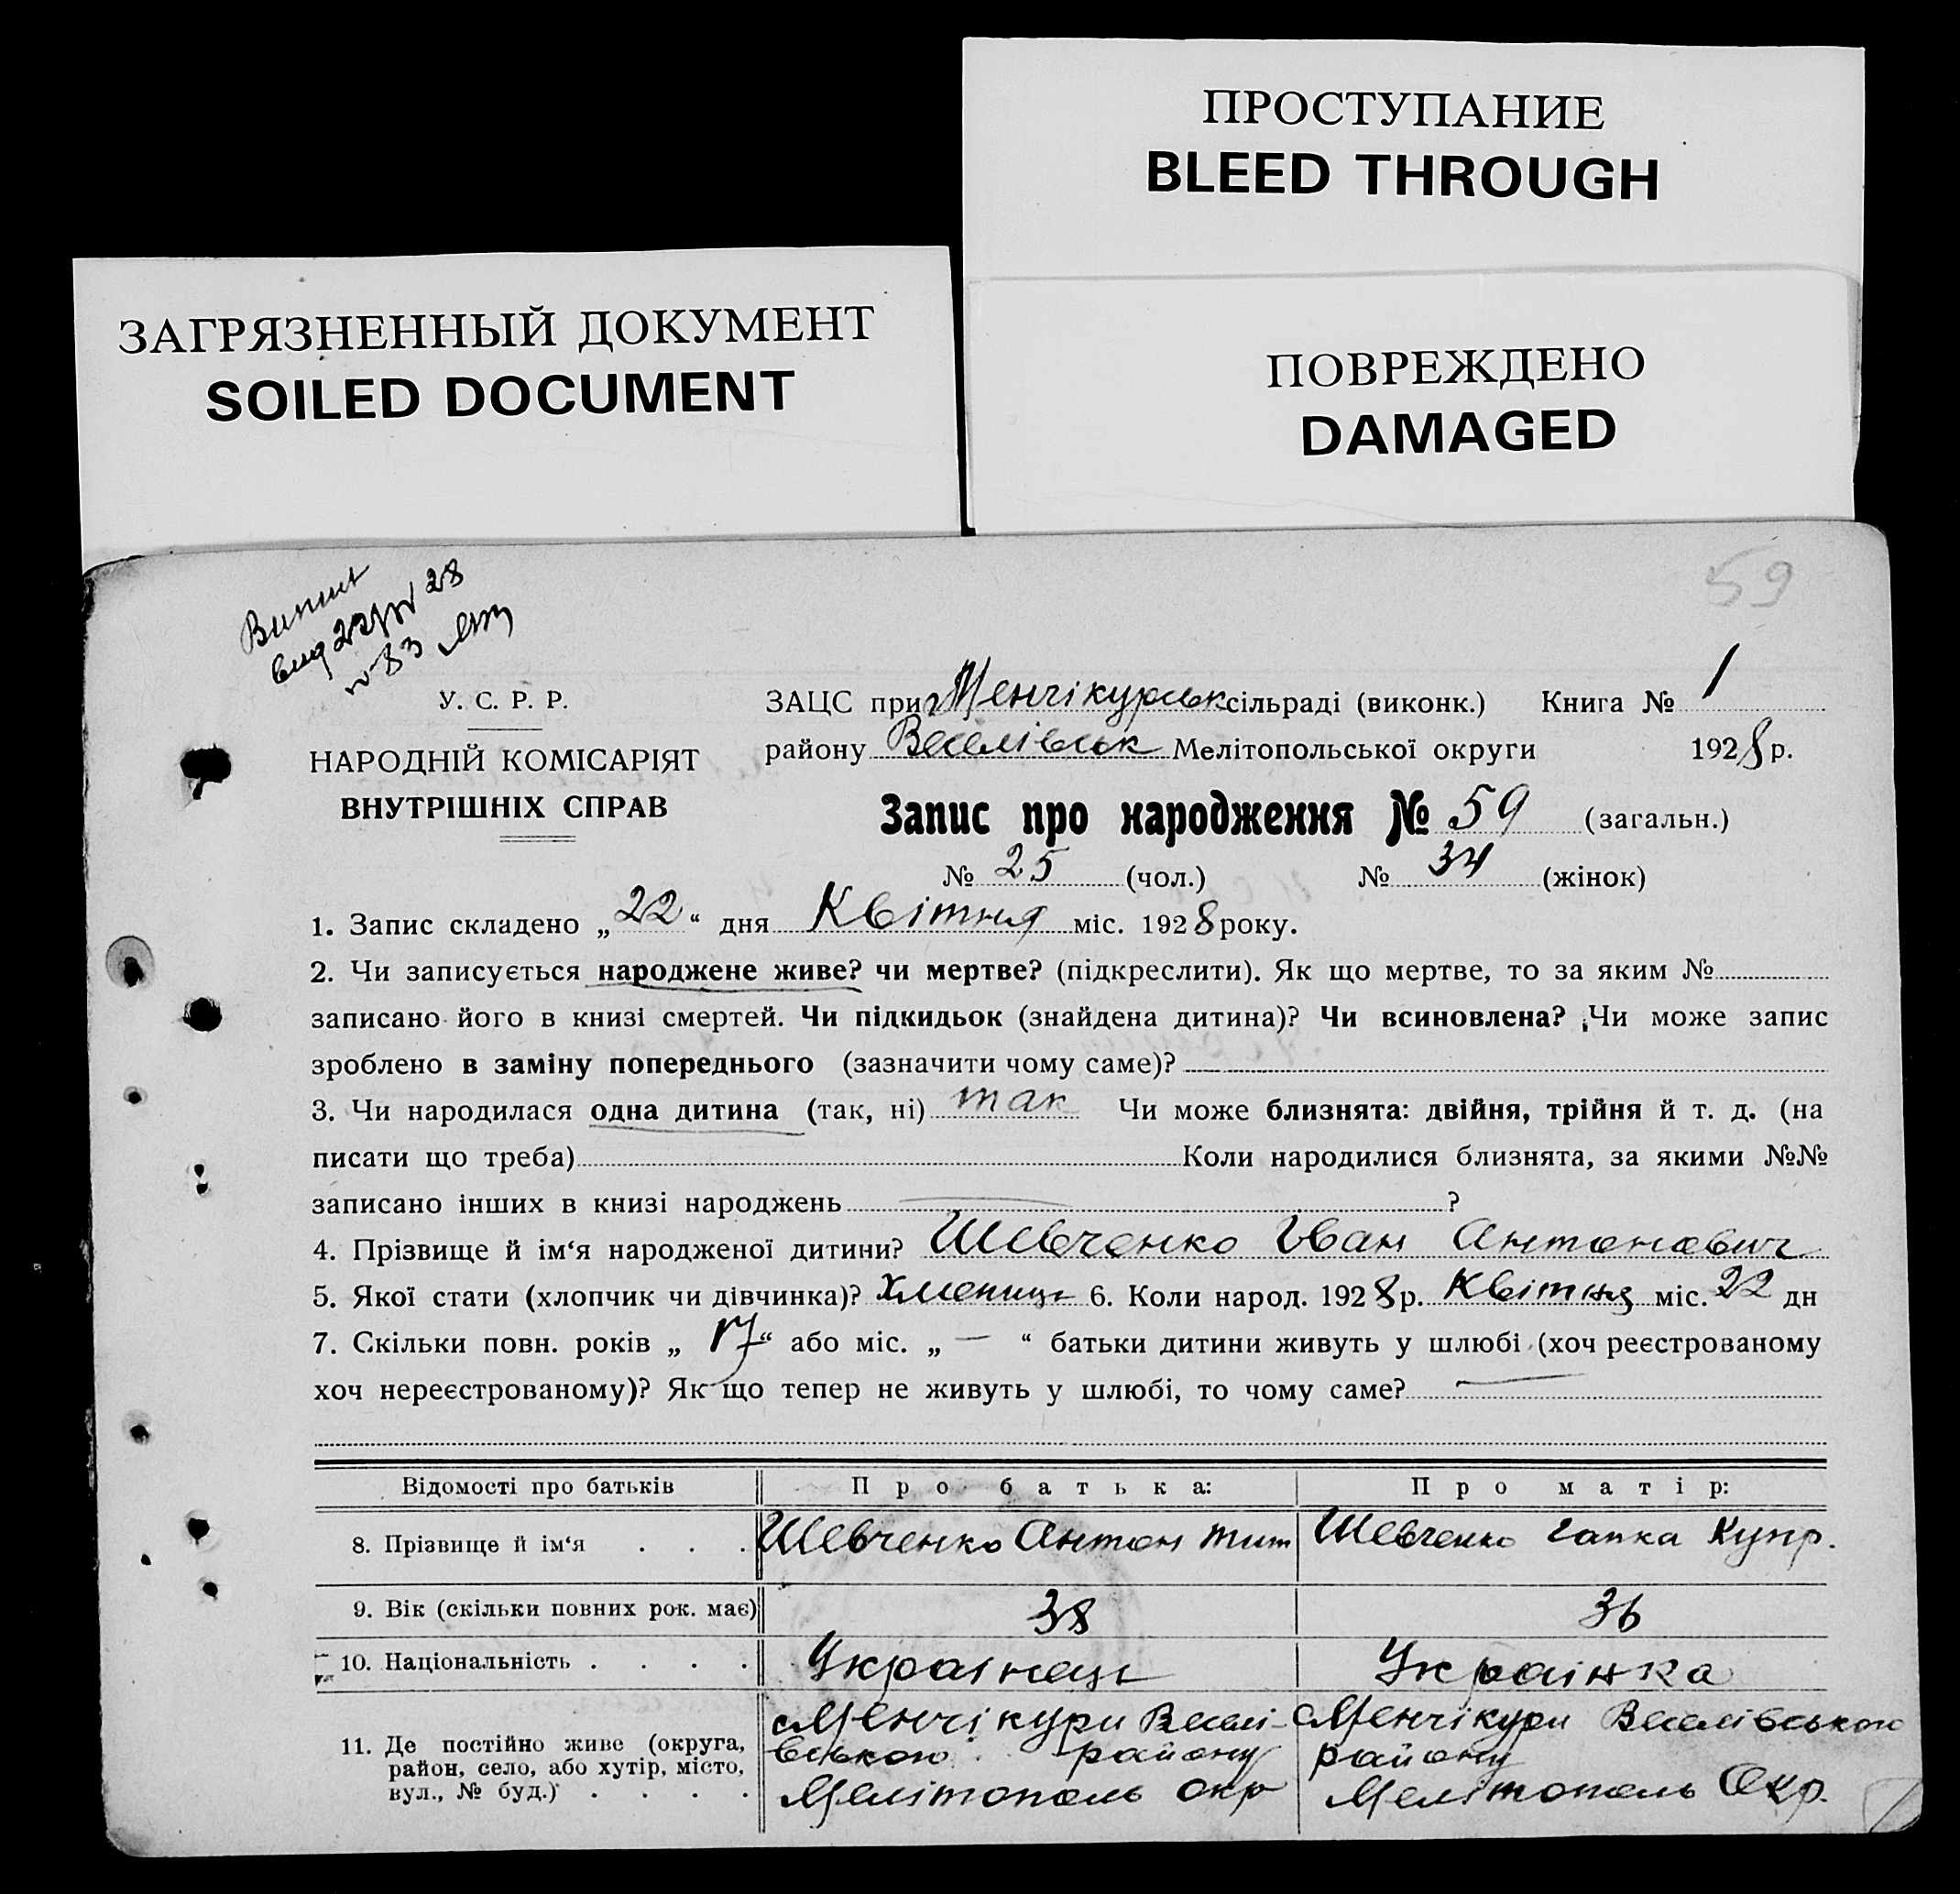 ПРОСТУПАНИЕ
BLEED THROUGH
ЗАГРЯЗНЕННЫЙ ДОКУМЕНТ
SOILED DOCUMENT
ПОВРЕЖДЕНО
DAMAGED
59
вид 28
№ 83
У. С. Р. Р.
НАРОДНІЙ КОМІСАРІЯТ
ВНУТРІШНІХ СПРАВ
ЗАЦС при Менчікурськ сільраді (виконк.) Книга № 1
району Веселівськ Мелітопольської округи 1928 р.
Запис про народження № 59 (загальн.)
№ 25 (чол.) № 34 (жінок)
1. Запис складено „22“ дня Квітня міс. 1928 року.
2. Чи записується народжене живе? чи мертве? (підкреслити). Як що мертве, то за яким №
записано його в книзі смертей. Чи підкидьок (знайдена дитина)? Чи всиновлена? Чи може запис
зроблено в заміну попереднього (зазначити чому саме)?
3. Чи народилася одна дитина (так, ні) так Чи може близнята: двійня, трійня й т. д. (на
писати що треба) Коли народилися близнята, за якими №№
записано інших в книзі народжень — ?
4. Прізвище й ім‘я народженої дитини? Шевченко Іван Антонович
5. Якої стати (хлопчик чи дівчинка)? 6. Коли народ. 1928 р. Квітня міс. 22 дн
7. Скільки повн. років „17“ або міс. „—“ батьки дитини живуть у шлюбі (хоч реєстрованому
хоч нереєстрованому)? Як що тепер не живуть у шлюбі, то чому саме? —
Відомості про батьків Про батька: Про матір:
8. Прізвище й ім‘я . . . Шевченко Антон Тит Шевченко Гапка Купр.
9. Вік (скільки повних рок. має) 38 36
10. Національність . . . . Українець Українка
11. Де постійно живе (округа,
район, село, або хутір, місто,
вул., № буд.) . . . .
с Менчікури Веселі-
вською району
Мелітополь окр
с Менчікури Веселівською
району
Мелітополь Окр.